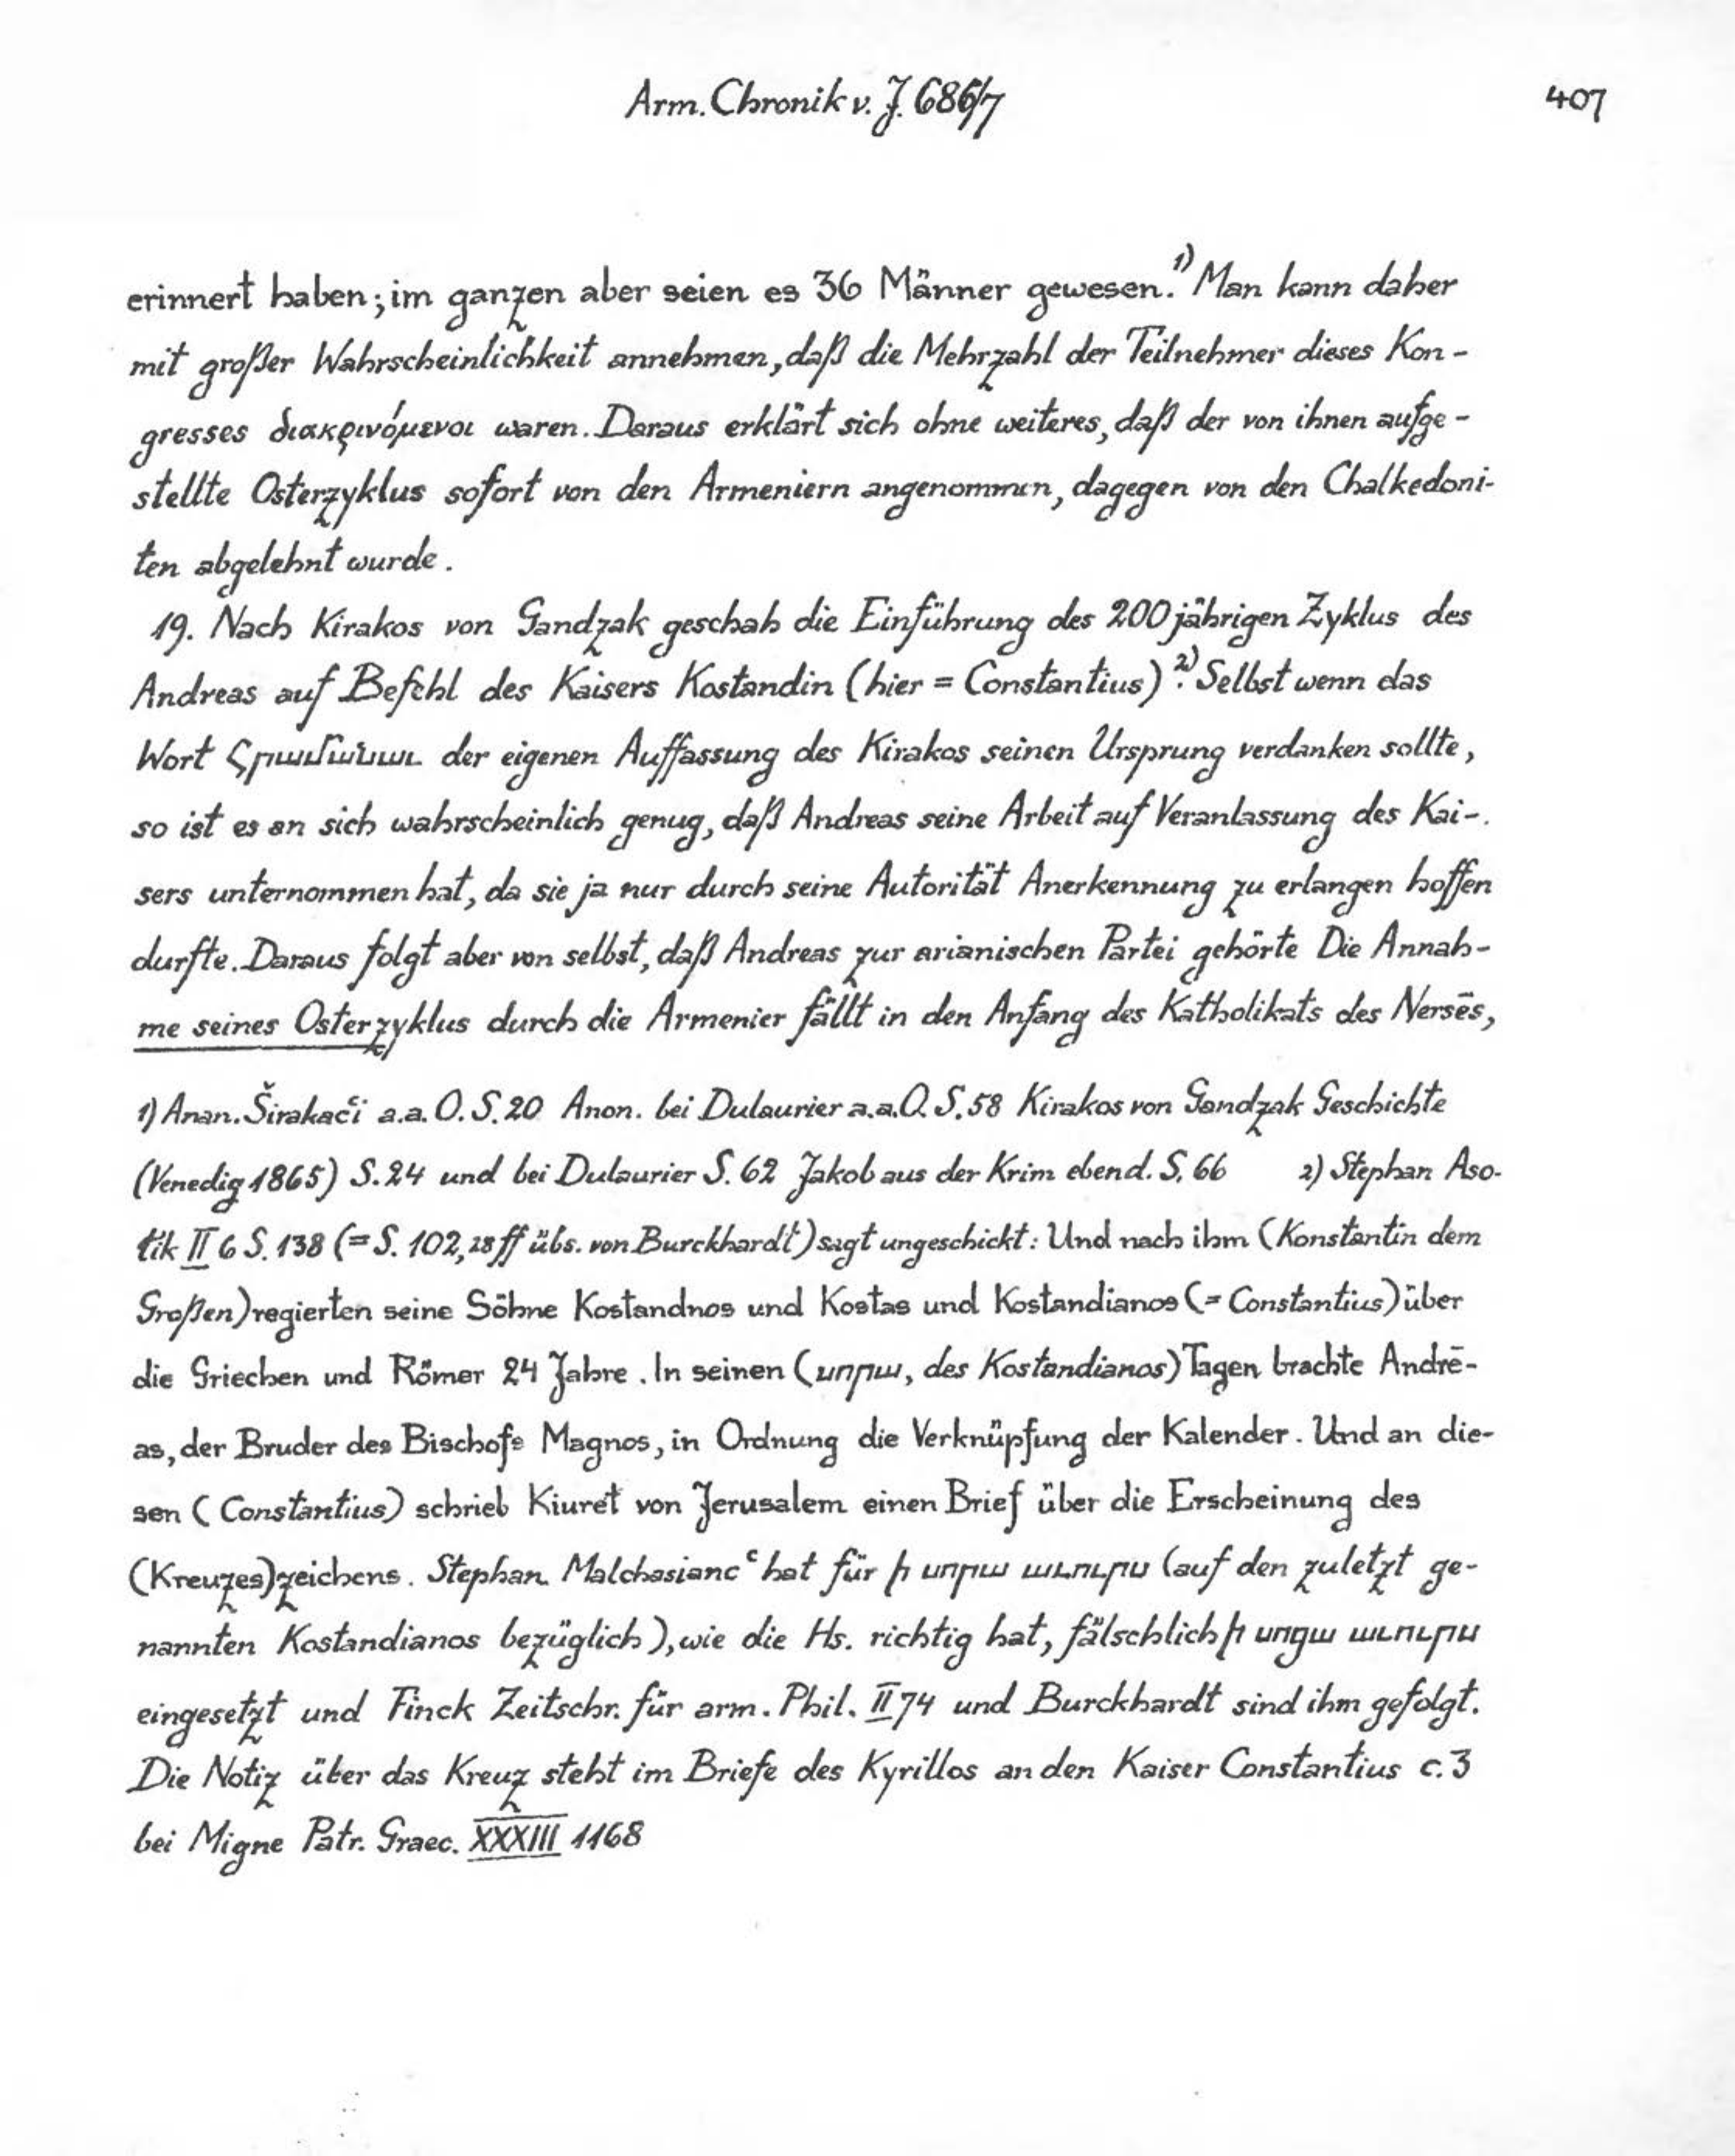 Arm. Chronik v. J. 686/7
407
erinnert haben; im ganzen aber seien es 36 Männer gewesen.¹⁾ Man kann daher
mit großer Wahrscheinlichkeit annehmen, daß die Mehrzahl der Teilnehmer dieses Kon-
gresses διακρινόμενοι waren. Daraus erklärt sich ohne weiteres, daß der von ihnen aufge-
stellte Osterzyklus sofort von den Armeniern angenommen, dagegen von den Chalkedoni-
ten abgelehnt wurde.
19. Nach Kirakos von Gandzak geschah die Einführung des 200jährigen Zyklus des
Andreas auf Befehl des Kaisers Kostandin (hier = Constantius).²⁾ Selbst wenn das
Wort հրամանաւ der eigenen Auffassung des Kirakos seinen Ursprung verdanken sollte,
so ist es an sich wahrscheinlich genug, daß Andreas seine Arbeit auf Veranlassung des Kai-
sers unternommen hat, da sie ja nur durch seine Autorität Anerkennung zu erlangen hoffen
durfte. Daraus folgt aber von selbst, daß Andreas zur arianischen Partei gehörte Die Annah-
me seines Osterzyklus durch die Armenier fällt in den Anfang des Katholikats des Nersēs,
1) Anan. Širakac̔i a.a.O. S. 20 Anon. bei Dulaurier a.a.O. S. 58 Kirakos von Gandzak Geschichte
(Venedig 1865) S. 24 und bei Dulaurier S. 62 Jakob aus der Krim ebend. S. 66 2) Stephan Aso-
łik II 6 S. 138 (= S. 102, 28 ff übs. von Burckhardt) sagt ungeschickt: Und nach ihm (Konstantin dem
Großen) regierten seine Söhne Kostandnos und Kostas und Kostandianos (= Constantius) über
die Griechen und Römer 24 Jahre. In seinen (սորա, des Kostandianos) Tagen brachte Andrē-
as, der Bruder des Bischofs Magnos, in Ordnung die Verknüpfung der Kalender. Und an die-
sen (Constantius) schrieb Kiureł von Jerusalem einen Brief über die Erscheinung des
(Kreuzes)zeichens. Stephan Malchasianc̔ hat für ի սորա աւուրս (auf den zuletzt ge-
nannten Kostandianos bezüglich), wie die Hs. richtig hat, fälschlich ի սոցա աւուրս
eingesetzt und Finck Zeitschr. für arm. Phil. II 74 und Burckhardt sind ihm gefolgt.
Die Notiz über das Kreuz steht im Briefe des Kyrillos an den Kaiser Constantius c. 3
bei Migne Patr. Graec. XXXIII 1168